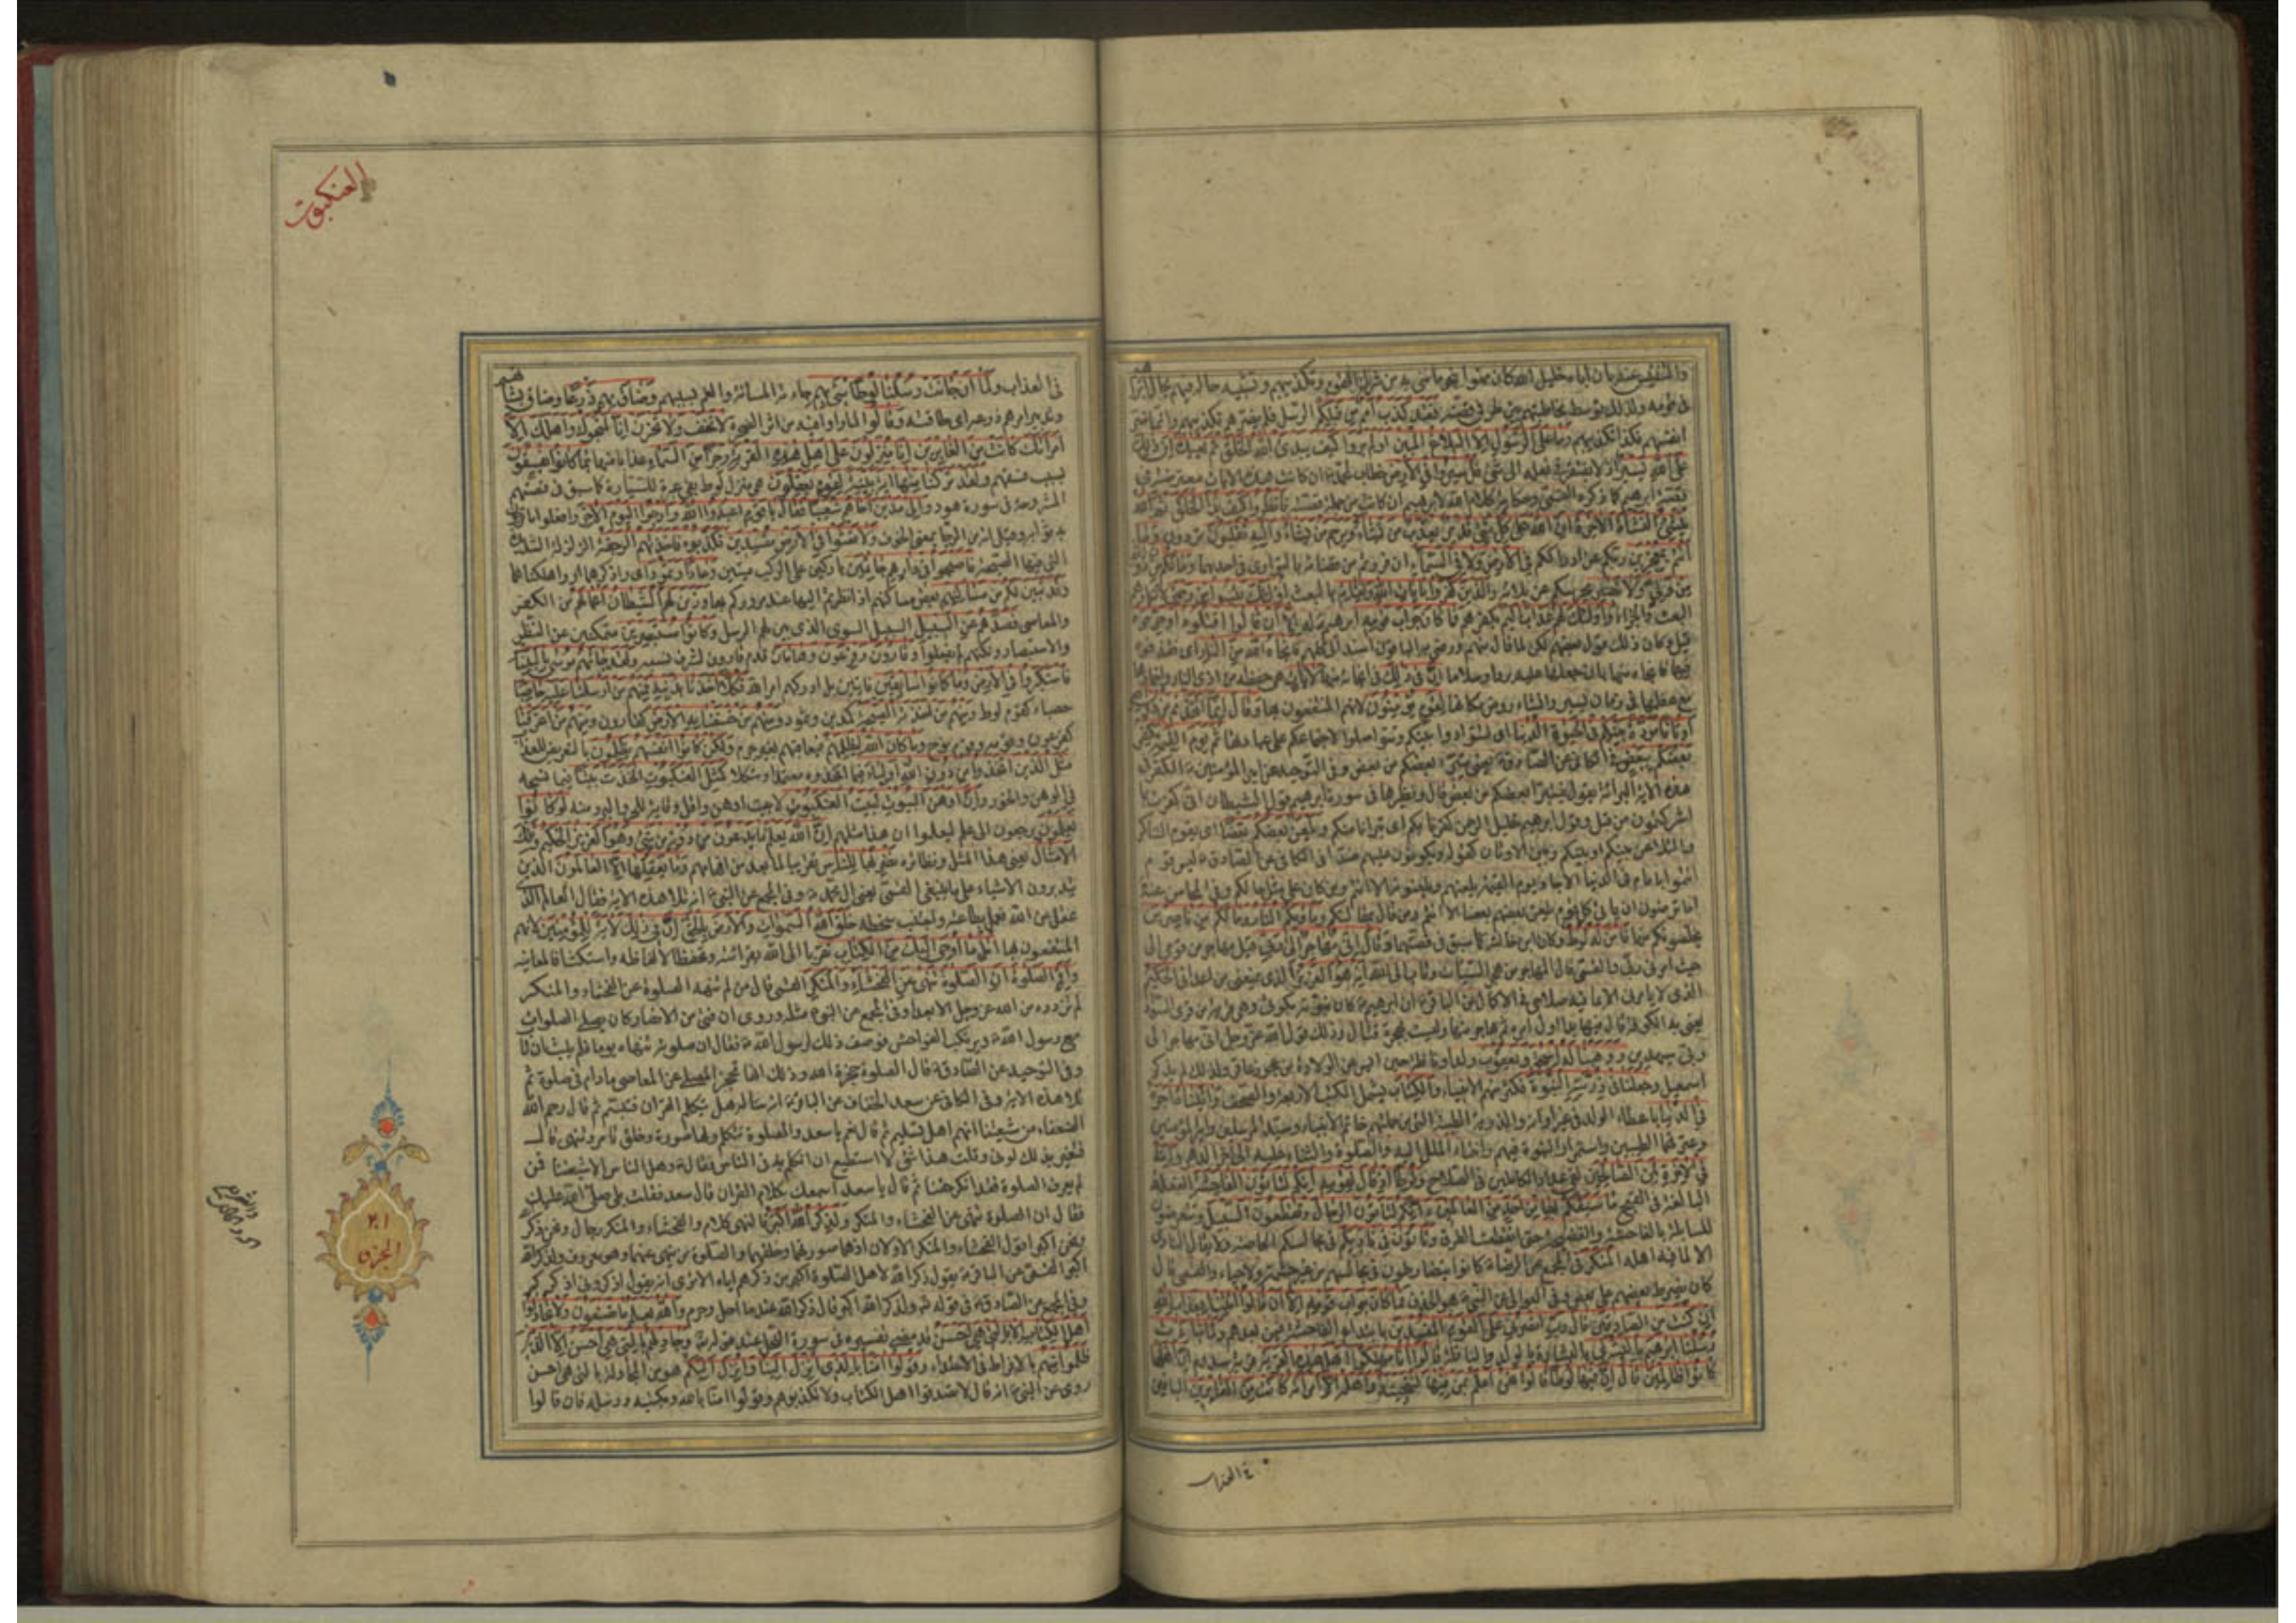 والتنفيس عنه بان اباه خليل الله كان ممنوا بنحو ما مني به من شرك القوم وتكذيبهم وتشبيه حاله فيهم بحال ابراهيم
في قومه ولذلك توسط مخاطبتهم من طرفي قصته فقد كذب امم من قبلكم الرسل فلم يضرهم تكذيبهم وانما ضر
انفسهم فكذا تكذيبكم وما على الرسول الا البلاغ المبين اولم يروا كيف يبدئ الله الخلق ثم يعيده ان ذلك
على الله يسير اذ لا يفتقر في فعله الى شئ قل سيروا في الارض خطاب لمحمد ان كانت هذه الايات معترضة في
قصة ابرهيم كما ذكره القمي وحكاية كلام الله لابرهيم ان كانت من جملة قصته فانظروا كيف بدا الخلق ثم الله
ينشئ النشاة الاخرة ان الله على كل شئ قدير يعذب من يشاء ويرحم من يشاء واليه تقلبون تردون وما
انتم بمعجزين ربكم عن ادراككم في الارض ولا في السماء ان فررتم من قضائه بالتواري في احديهما وما لكم من دون الله
من ولي ولا نصير يحرسكم عن بلائه والذين كفروا بايات الله ولقائه بالبعث اولئك يئسوا من رحمتي لانكارهم
البعث والجزاء واولئك لهم عذاب اليم بكفرهم فما كان جواب قومه قوم ابرهيم له الا ان قالوا اقتلوه او حرقوه
قيل وكان ذلك قول بعضهم لكن لما قال منهم ورضي به الباقون اسند الى كلهم فانجاه الله من النار اي فقذفوه
فيها فانجاه منها بان جعلها عليه بردا وسلاما ان في ذلك في انجائه منها لايات هي حفظه من اذى النار واخمادها
مع عظمها في زمان يسير وانشاء روض مكانها لقوم يؤمنون لانهم المنتفعون بها وقال انما اتخذتم من دون الله
اوثانا مودة بينكم في الحيوة الدنيا اي لتتوادوا بينكم وتتواصلوا لاجتماعكم على عبادتها ثم يوم القيمة يكفر
بعضكم ببعض في الكافي عن الصادق يعني يتبرء بعضكم من بعض وفي التوحيد عن امير المؤمنين الكفر في
هذه الاية البرائة يقول فيتبرأ بعضكم من بعض قال ونظيرها في سورة ابرهيم قول الشيطان اني كفرت بما
اشركتمون من قبل وقول ابرهيم خليل الرحمن كفرنا بكم اي تبرانا منكم ويلعن بعضكم بعضا اي يقوم التناكر
والتلاعن بينكم او بينكم وبين الاوثان كقوله ويكونون عليهم ضدا في الكافي عن الصادق ليس قوم
ائتموا بامام في الدنيا الا جاء يوم القيمة يلعنهم ويلعنونه الا انتم ومن كان على مثل حالكم وفي المحاسن عنه
اما ترضون ان ياتي كل قوم يلعن بعضهم بعضا الا انتم ومن قال بمقالتكم وماويكم النار وما لكم من ناصرين
يخلصونكم منها فامن له لوط وكان ابن خالته كما سبق في قصتهما وقال اني مهاجر الى ربي قيل مهاجر من قومي الى
حيث امرني ربي والقمي قال المهاجر من هجر السيئات وتاب الى الله انه هو العزيز الذي يمنعني من اعدائي الحكيم
الذي لا يامرني الا بما فيه صلاحي في الاكمال عن الباقر ان ابرهيم كان نبوته بكوثى وهي قرية من قرى السواد
يعني به الكوفة قال فيها بدا اول امره ثم هاجر منها وليست بهجرة قتال وذلك قول الله عز وجل اني مهاجر الى
ربي سيهدين ووهبنا له اسحق ويعقوب ولدا ونافلة حين ايس عن الولادة من عجوز عاقر ولذلك لم يذكر
اسمعيل وجعلنا في ذريته النبوة فكثر منهم الانبياء والكتاب يشمل الكتب الاربعة والصحف واتيناه اجره
في الدنيا باعطاء الولد في غير اوانه والذرية الطيبة التي من جملتهم خاتم الانبياء وسيد المرسلين وامير المؤمنين
وعترتهما الطيبين واستمرار النبوة فيهم وانتماء الملل اليه والصلوة والثناء عليه الى اخر الدهر وانه
في الاخرة لمن الصالحين لفي عداد الكاملين في الصلاح ولوطا اذ قال لقومه ائنكم لتاتون الفاحشة الفعلة
البالغة في القبح ما سبقكم بها من احد من العالمين ائنكم لتاتون الرجال وتقطعون السبيل وتتعرضون
للسابلة بالفاحشة والفضيحة حتى انقطعت الطرق وتاتون في ناديكم في مجالسكم الغاصة ولا يقال النادي
الا لما فيه اهله المنكر في المجمع عن الرضا كانوا يتضارطون في مجالسهم من غير حشمة ولا حياء والقمي قال
كان يضرط بعضهم على بعض وفي العوالي عن النبي هو الخذف فما كان جواب قومه الا ان قالوا ائتنا بعذاب الله
ان كنت من الصادقين قال رب انصرني على القوم المفسدين بابتداع الفاحشة فيمن بعدهم ولما جاءت
رسلنا ابرهيم بالبشرى بالبشارة بالولد والنافلة قالوا انا مهلكوا اهل هذه القرية قرية سدوم ان اهلها
كانوا ظالمين قال ان فيها لوطا قالوا نحن اعلم بمن فيها لننجينه واهله الا امراته كانت من الغابرين الباقين
في العذاب
العنكبوت
في العذاب ولما ان جائت رسلنا لوطا سئ بهم جاءته المسائة والغم بسببهم وضاق بهم ذرعا وضاق بشانهم
وتدبير امرهم ذرعه اي طاقته وقالوا لما راوا فيه من اثر الضجرة لا تخف ولا تحزن انا منجوك واهلك الا
امراتك كانت من الغابرين انا منزلون على اهل هذه القرية رجزا من السماء عذابا منها بما كانوا يفسقون
بسبب فسقهم ولقد تركنا منها اية بينة لقوم يعقلون هي منزل لوط بقي عبرة للسيارة كما سبق في قصتهم
المشروحة في سورة هود والى مدين اخاهم شعيبا فقال يا قوم اعبدوا الله وارجوا اليوم الاخر وافعلوا ما ترجون
به ثوابه وقيل انه من الرجا بمعنى الخوف ولا تعثوا في الارض مفسدين فكذبوه فاخذتهم الرجفة الزلزلة الشديدة
التي فيها الصيحة فاصبحوا في دارهم جاثمين باركين على الركب ميتين وعادا وثمود اي واذكرهما او واهلكناهما
وقد تبين لكم من مساكنهم بعض مساكنهم اذا نظرتم اليها عند مروركم بها وزين لهم الشيطان اعمالهم من الكفر
والمعاصي فصدهم عن السبيل السبيل السوي الذي بين لهم الرسل وكانوا مستبصرين متمكنين عن النظر
والاستبصار ولكنهم لم يفعلوا وقارون وفرعون وهامان قدم قارون لشرف نسبه ولقد جائهم موسى بالبينات
فاستكبروا في الارض وما كانوا سابقين فائتين بل ادركهم امر الله فكلا اخذنا بذنبه فمنهم من ارسلنا عليه حاصبا
حصباء كقوم لوط ومنهم من اخذته الصيحة كمدين وثمود ومنهم من خسفنا به الارض كقارون ومنهم من اغرقنا
كفرعون وقومه وقوم نوح وما كان الله ليظلمهم فيعاقبهم بغير جرم ولكن كانوا انفسهم يظلمون بالتعريض للعذاب
مثل الذين اتخذوا من دون الله اولياء فيما اتخذوه معتمدا ومتكلا كمثل العنكبوت اتخذت بيتا فيما نسجه
في الوهن والخور وان اوهن البيوت لبيت العنكبوت لا بيت اوهن واقل وقاية للحر والبرد منه لو كانوا
يعلمون يرجعون الى علم ليعلموا ان هذا مثلهم ان الله يعلم ما يدعون من دونه من شئ وهو العزيز الحكيم وتلك
الامثال يعني هذا المثل ونظائره نضربها للناس تقريبا لما بعد من افهامهم وما يعقلها الا العالمون الذين
يتدبرون الاشياء على ما ينبغي القمي يعني ال محمد وفي المجمع عن النبي انه تلا هذه الاية فقال العالم الذي
عقل عن الله فعمل بطاعته واجتنب سخطه خلق الله السموات والارض بالحق ان في ذلك لاية للمؤمنين لانهم
المنتفعون بها اتل ما اوحي اليك من الكتاب تقربا الى الله بقرائته وتحفظا لالفاظه واستكشافا لمعانيه
واقم الصلوة ان الصلوة تنهى عن الفحشاء والمنكر القمي قال من لم تنهه الصلوة عن الفحشاء والمنكر
لم تزده من الله عز وجل الا بعدا وفي المجمع عن النبي مثله وروى ان فتى من الانصار كان يصلي الصلوات
مع رسول الله ويرتكب الفواحش فوصف ذلك لرسول الله فقال ان صلوته تنهاه يوما فلم يلبث ان تاب
وفي التوحيد عن الصادق قال الصلوة حجزة الله وذلك انها تحجز المصلي عن المعاصي ما دام في صلوته ثم
تلا هذه الاية وفي الكافي عن سعد الخفاف عن الباقر انه سأله هل يتكلم القران فتبسم ثم قال رحم الله
الضعفاء من شيعتنا انهم اهل تسليم ثم قال نعم يا سعد والصلوة تتكلم ولها صورة وخلق تامر وتنهى قال
فتغير بذلك لوني وقلت هذا شئ لا استطيع ان اتكلم به في الناس فقال وهل الناس الا شيعتنا فمن
لم يعرف الصلوة فقد انكر حقنا ثم قال يا سعد اسمعك كلام القران قال سعد فقلت بلى صلى الله عليك
فقال ان الصلوة تنهى عن الفحشاء والمنكر ولذكر الله اكبر فالنهي كلام والفحشاء والمنكر رجال ونحن ذكر الله
ونحن اكبر اقول الفحشاء والمنكر الاولان اذ هما صورتهما وخلقهما والصلوة من ينهى عنهما وهو معروف ولذكر الله
اكبر القمي عن الباقر يقول ذكر الله لاهل الصلوة اكبر من ذكرهم اياه الا ترى انه يقول اذكروني اذكركم
وفي المجمع عن الصادق في قوله تع ولذكر الله اكبر قال ذكر الله عند ما احل وحرم والله يعلم ما تصنعون ولا تجادلوا
اهل الكتاب الا بالتي هي احسن قد مضى تفسيره في سورة النحل عند قوله تع وجادلهم بالتي هي احسن الا الذين
ظلموا منهم بالافراط في الاعتداء وقولوا امنا بالذي انزل الينا وانزل اليكم هو من المجادلة بالتي هي احسن
روي عن النبي انه قال لا تصدقوا اهل الكتاب ولا تكذبوهم وقولوا امنا بالله وبكتبه ورسله فان قالوا
٢١
الجزء